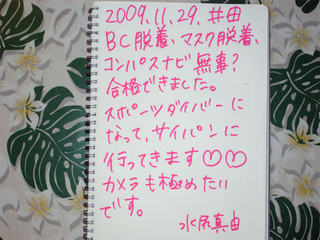 2009.11.29.井田
BC脱着、マスク脱着、
コンパスナビ無事?
合格できました。
スポーツダイバーに
なって、サイパンに
行ってきます♡♡
カメラも極めたい
です。
水尻真由